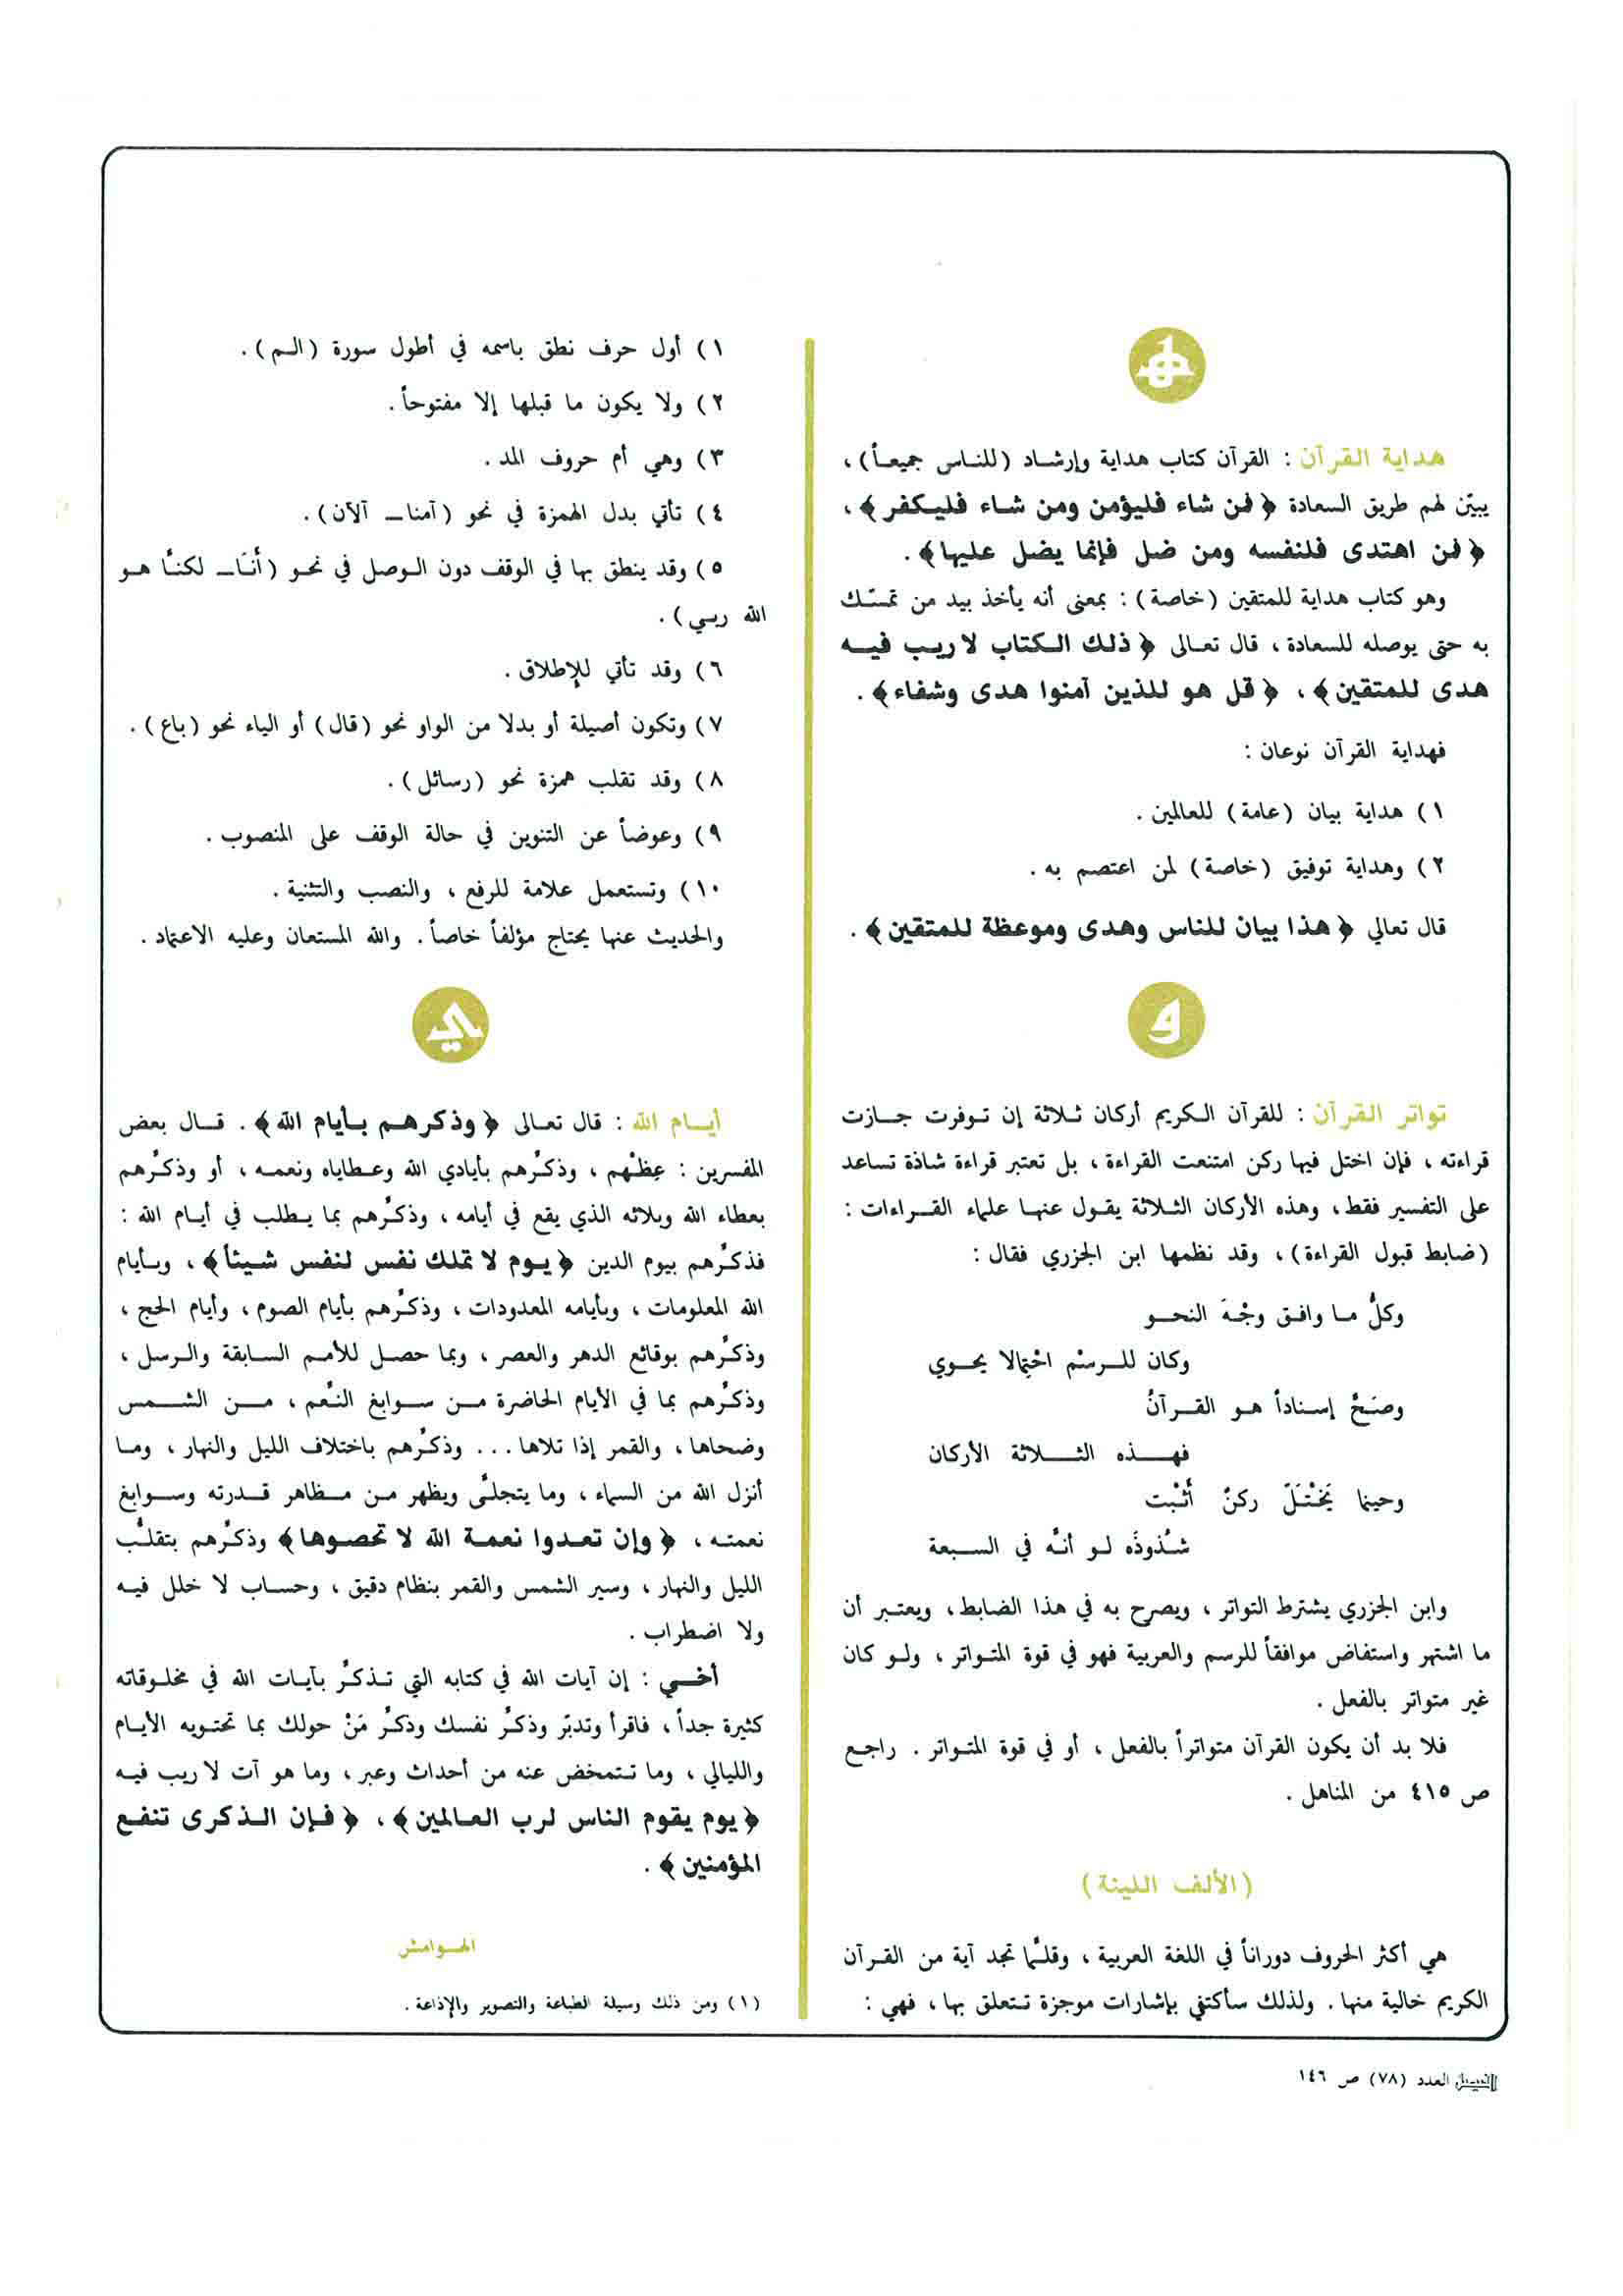 هـ
هداية القرآن : القرآن كتاب هداية وإرشاد (للناس جميعاً) ،
يبيّن لهم طريق السعادة ﴿ فمن شاء فليؤمن ومن شاء فليكفر ﴾ ،
﴿ فمن اهتدى فلنفسه ومن ضل فإنما يضل عليها ﴾ .
وهو كتاب هداية للمتقين (خاصة) : بمعنى أنه يأخذ بيد من تمسّك
به حتى يوصله للسعادة ، قال تعالى ﴿ ذلك الكتاب لا ريب فيه
هدى للمتقين ﴾ ، ﴿ قل هو للذين آمنوا هدى وشفاء ﴾ .
فهداية القرآن نوعان :
١ ) هداية بيان (عامة) للعالمين .
٢ ) وهداية توفيق (خاصة) لمن اعتصم به .
قال تعالي ﴿ هذا بيان للناس وهدى وموعظة للمتقين ﴾ .
و
تواتر القرآن : للقرآن الكريم أركان ثلاثة إن توفرت جازت
قراءته ، فإن اختل فيها ركن امتنعت القراءة ، بل تعتبر قراءة شاذة تساعد
على التفسير فقط ، وهذه الأركان الثلاثة يقول عنها علماء القراءات :
(ضابط قبول القراءة) ، وقد نظمها ابن الجزري فقال :
وكلُّ ما وافق وجْهَ النحو
وكان للرسْم احْتِمالا يحوي
وصَحَّ إسناداً هو القرآنُ
فهذه الثلاثة الأركان
وحيثما يَخْتَلّ ركنٌ أثْبت
شُذوذَه لو أنّه في السبعة
وابن الجزري يشترط التواتر ، ويصرح به في هذا الضابط ، ويعتبر أن
ما اشتهر واستفاض موافقاً للرسم والعربية فهو في قوة المتواتر ، ولو كان
غير متواتر بالفعل .
فلا بد أن يكون القرآن متواتراً بالفعل ، أو في قوة المتواتر . راجع
ص ٤١٥ من المناهل .
(الألف اللينة)
هي أكثر الحروف دوراناً في اللغة العربية ، وقلّما تجد آية من القرآن
الكريم خالية منها . ولذلك سأكتفي بإشارات موجزة تتعلق بها ، فهي :
١ ) أول حرف نطق باسمه في أطول سورة (الـم) .
٢ ) ولا يكون ما قبلها إلا مفتوحاً .
٣ ) وهي أم حروف المد .
٤ ) تأتي بدل الهمزة في نحو (آمنا ـ آلآن) .
٥ ) وقد ينطق بها في الوقف دون الوصل في نحو (أنَا ـ لكنَّا هو
الله ربي) .
٦ ) وقد تأتي للإطلاق .
٧ ) وتكون أصيلة أو بدلا من الواو نحو (قال) أو الياء نحو (باع) .
٨ ) وقد تقلب همزة نحو (رسائل) .
٩ ) وعوضاً عن التنوين في حالة الوقف على المنصوب .
١٠ ) وتستعمل علامة للرفع ، والنصب والتثنية .
والحديث عنها يحتاج مؤلفاً خاصاً . والله المستعان وعليه الاعتماد .
ي
أيـام الله : قال تعالى ﴿ وذكرهم بأيام الله ﴾ . قال بعض
المفسرين : عِظْهم ، وذكّرهم بأيادي الله وعطاياه ونعمه ، أو وذكّرهم
بعطاء الله وبلائه الذي يقع في أيامه ، وذكّرهم بما يطلب في أيام الله :
فذكّرهم بيوم الدين ﴿ يوم لا تملك نفس لنفس شيئاً ﴾ ، وبأيام
الله المعلومات ، وبأيامه المعدودات ، وذكّرهم بأيام الصوم ، وأيام الحج ،
وذكّرهم بوقائع الدهر والعصر ، وبما حصل للأمم السابقة والرسل ،
وذكّرهم بما في الأيام الحاضرة من سوابغ النّعم ، من الشمس
وضحاها ، والقمر إذا تلاها ... وذكّرهم باختلاف الليل والنهار ، وما
أنزل الله من السماء ، وما يتجلّى ويظهر من مظاهر قدرته وسوابغ
نعمته ، ﴿ وإن تعدوا نعمة الله لا تحصوها ﴾ وذكّرهم بتقلّب
الليل والنهار ، وسير الشمس والقمر بنظام دقيق ، وحساب لا خلل فيه
ولا اضطراب .
أخي : إن آيات الله في كتابه التي تذكّر بآيات الله في مخلوقاته
كثيرة جداً ، فاقرأ وتدبّر وذكّر نفسك وذكّر مَنْ حولك بما تحتويه الأيام
والليالي ، وما تتمخض عنه من أحداث وعبر ، وما هو آت لا ريب فيه
﴿ يوم يقوم الناس لرب العالمين ﴾ ، ﴿ فإن الذكرى تنفع
المؤمنين ﴾ .
الهوامش
(١) ومن ذلك وسيلة الطباعة والتصوير والإذاعة .
الفيصل العدد (٧٨) ص ١٤٦